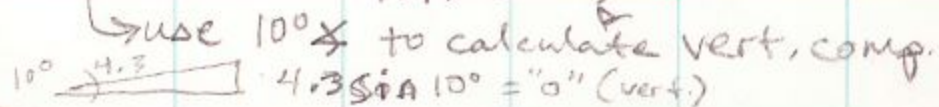 ↳use 10°∡ to calculate vert. comp.
10° 4.3 4.3 sin 10° = "o" (vert.)